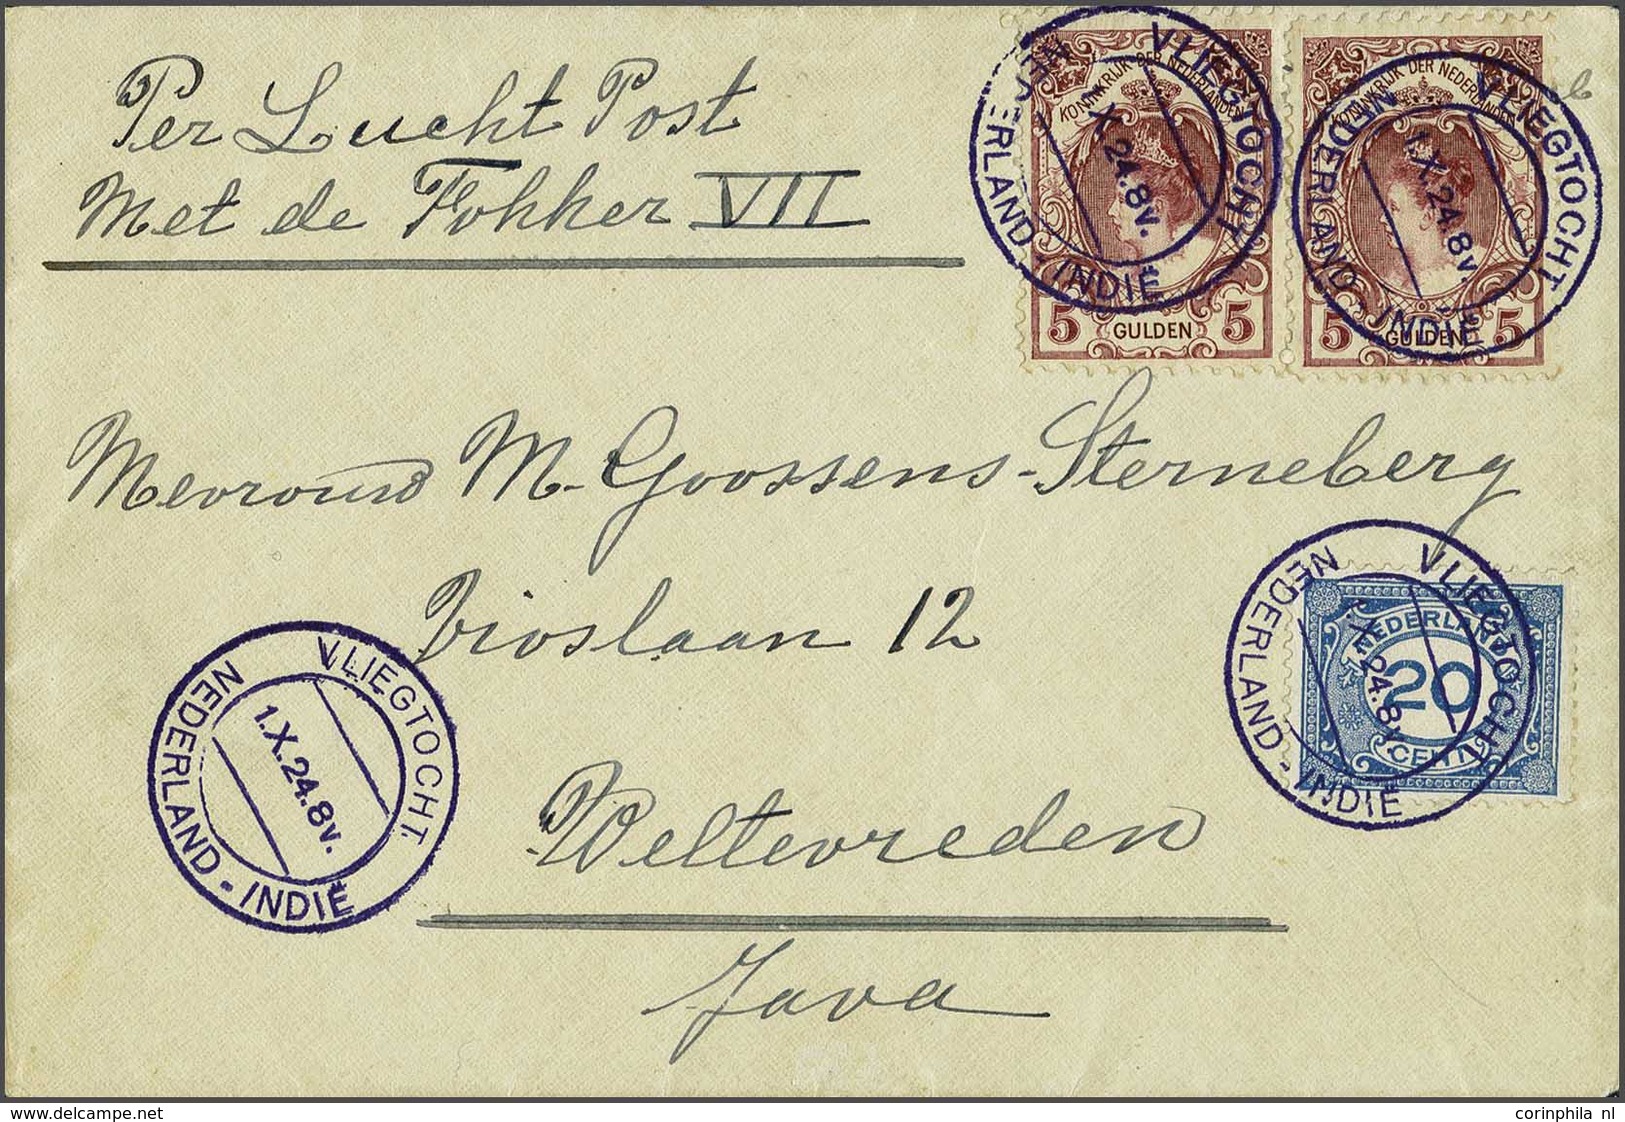 Per Lucht Post
Met de Fokker VII
KONINKRIJK DER NEDERLANDEN
5 GULDEN 5
VLIEGTOCHT
NEDERLAND - INDIË
1.X.24.8v.
KONINKRIJK DER NEDERLANDEN
5 GULDEN 5
VLIEGTOCHT
NEDERLAND - INDIË
1.X.24.8v.
Mevrouw M. Goossens-Sterneberg
Vioslaan 12
NEDERLAND
20
CENT
VLIEGTOCHT
NEDERLAND - INDIË
1.X.24.8v.
VLIEGTOCHT.
NEDERLAND - INDIË
1.X.24.8v.
Weltevreden
Java
delcampe.net
corinphila nl